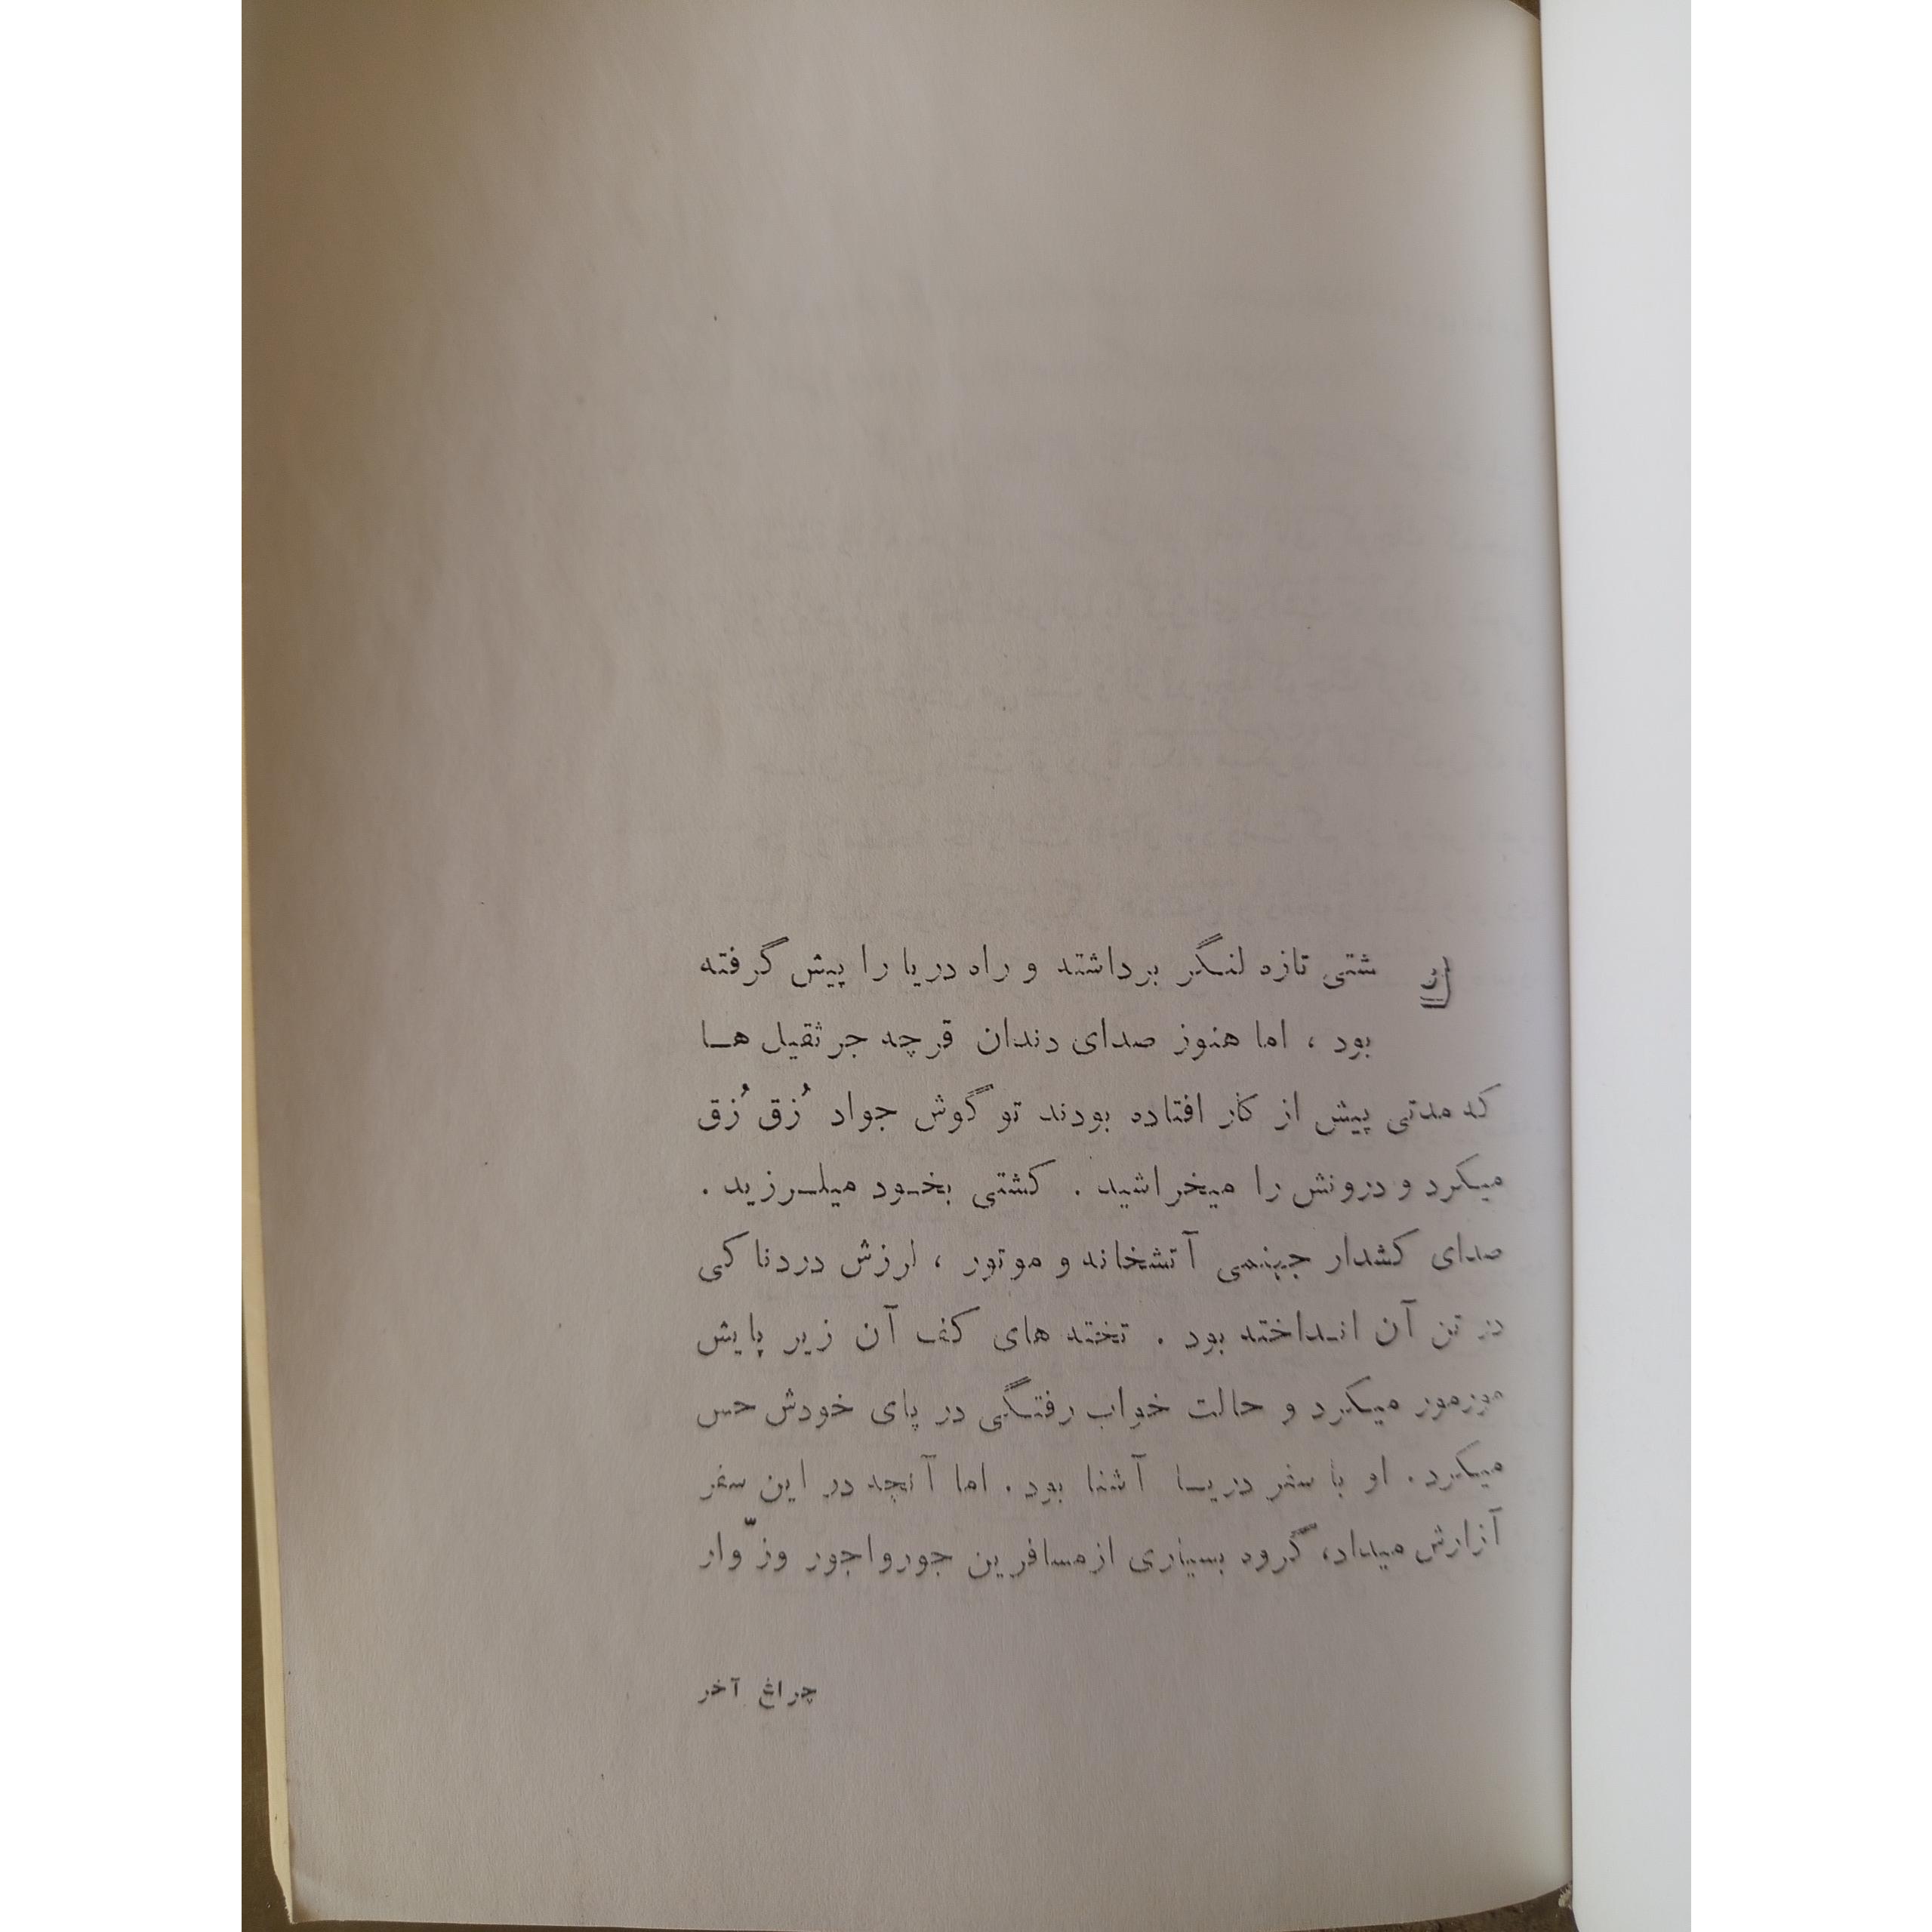 کشتی تازه لنگر برداشته و راه دریا را پیش گرفته
بود ، اما هنوز صدای دندان قرچه جرثقیل هـا
که مدتی پیش از کار افتاده بودند تو گوش جواد زُق زُق
میکرد و درونش را میخراشید . کشتی بخـود میلـرزید .
صدای کشدار جهنمی آتشخانه و موتور ، لرزش دردناکی
در تن آن انـداخته بود . تخته های کف آن زیر پایش
مورمور میکرد و حالت خواب رفتگی در پای خودش حس
میکرد . او با سفر دریـا آشنا بود . اما آنچه در این سفر
آزارش میداد، گروه بسیاری ازمسافرین جورواجور وزّوار
چراغ آخر